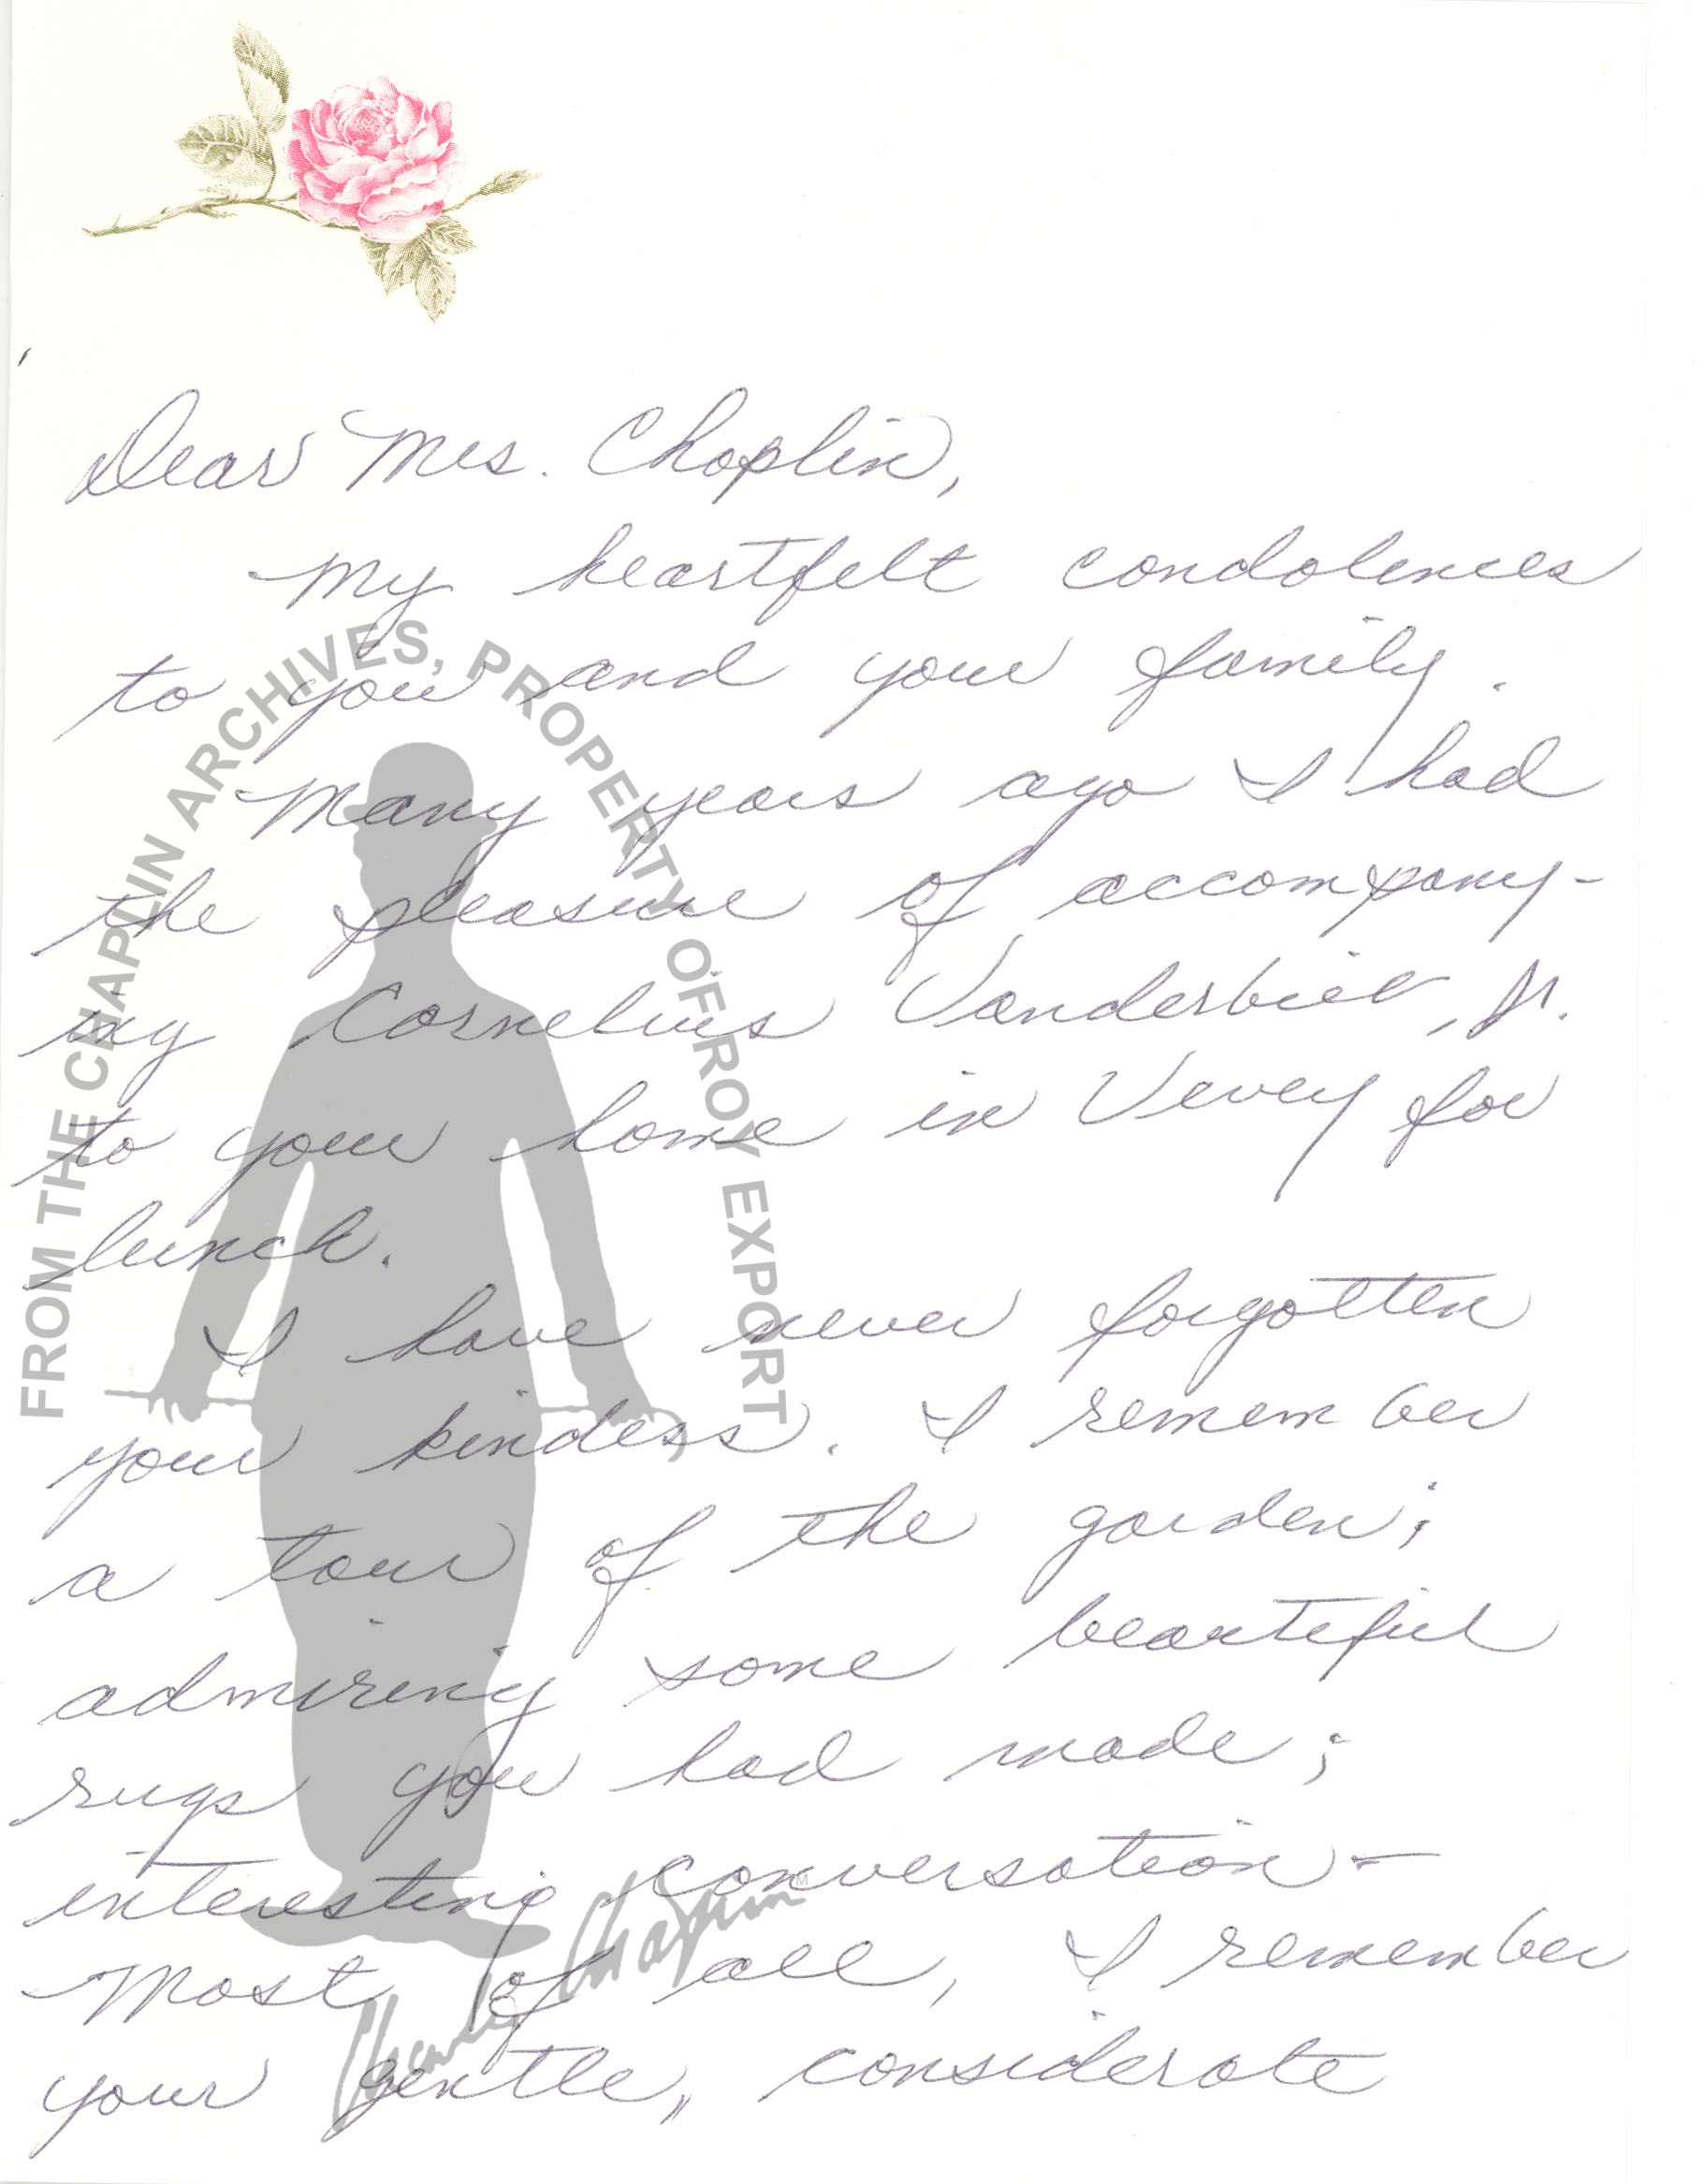 Dear Mrs. Chaplin,
My heartfelt condolences
to you and your family.
Many years ago I had
the pleasure of accompany-
ing Cornelius Vanderbilt, Jr.
to your home in Vevey for
lunch.
I have never forgotten
your kindess. I remember
a tour of the garden;
admiring some beautiful
rugs you had made;
interesting conversation –
Most of all, I remember
your gentle, considerate
FROM THE CHAPLIN ARCHIVES, PROPERTY OF ROY EXPORT
Charlie Chaplin